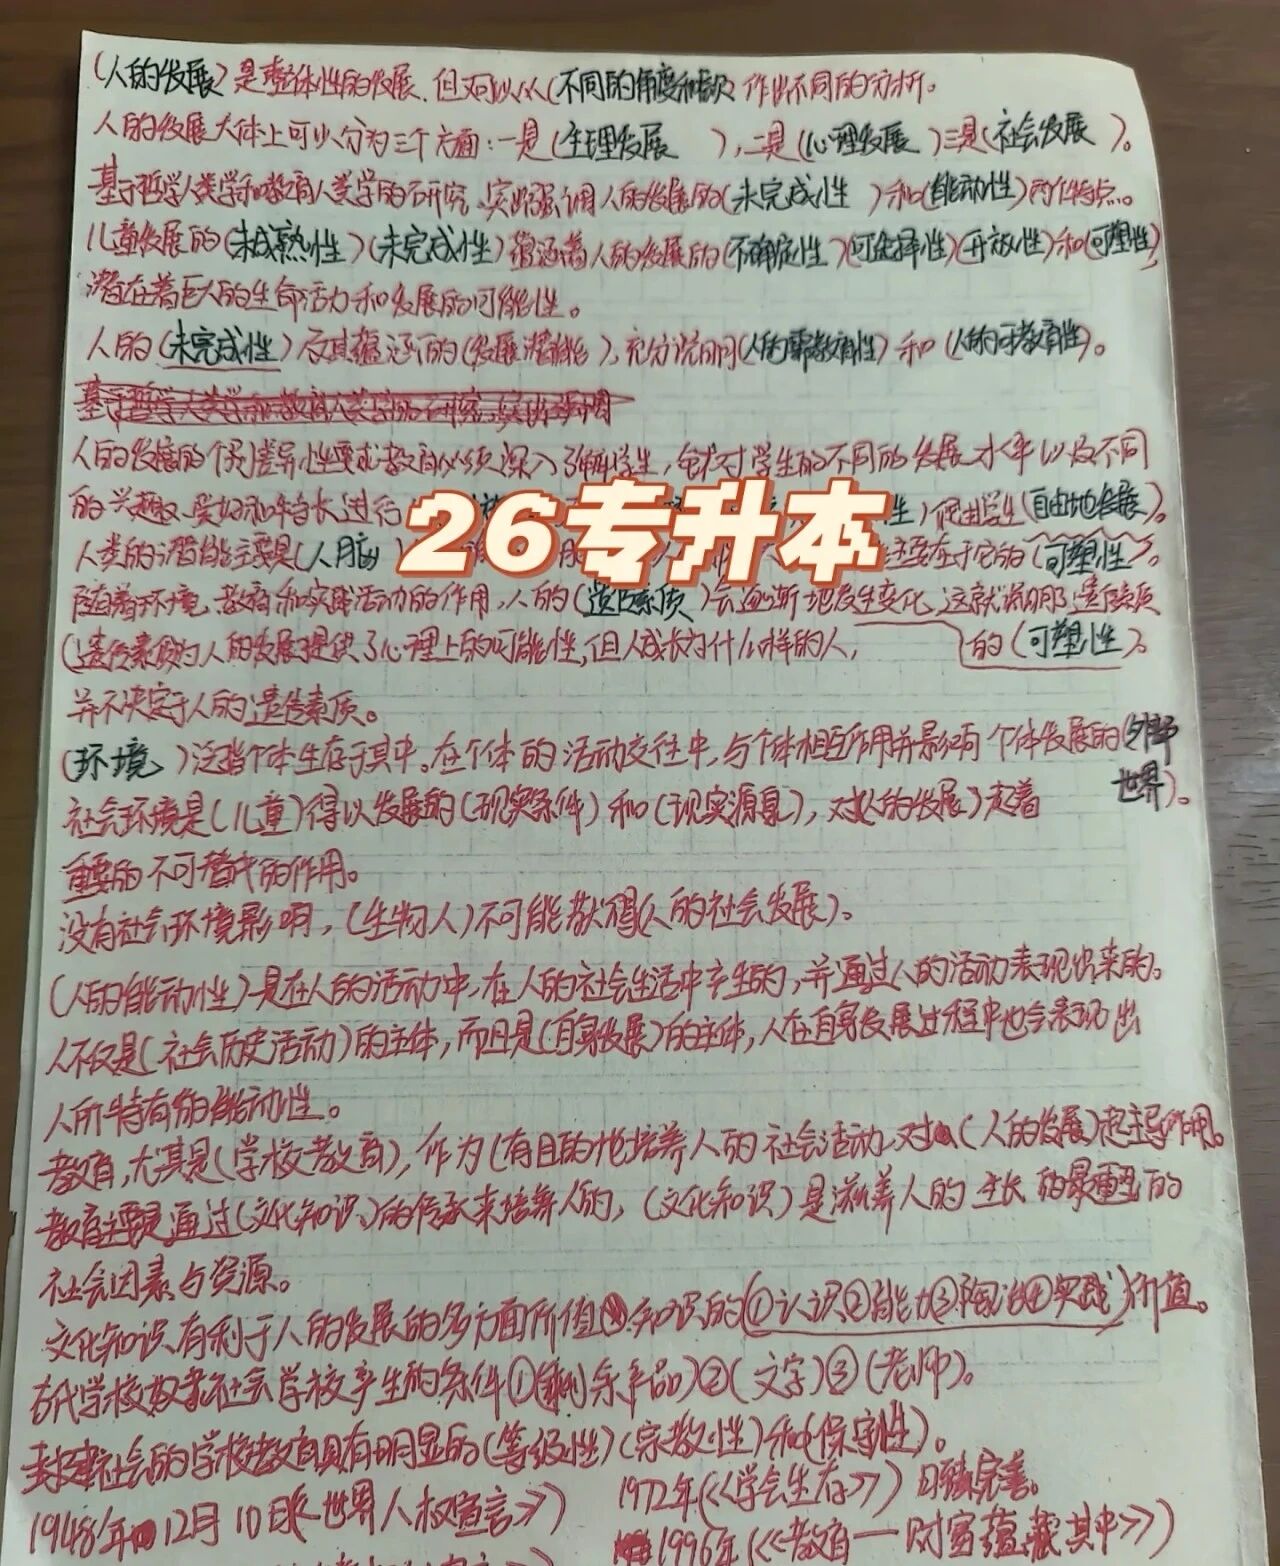 (人的发展)是整体性的发展,但又可以从(不同的角度和层次)作出不同的分析。
人的发展大体上可以分为三个方面:一是(生理发展 ),二是(心理发展 )三是(社会发展 )。
基于哲学人类学和教育人类学的研究、实际强调人的发展的(未完成性 )和(能动性)两个特点。
儿童发展的(未成熟性)(未完成性)蕴涵着人的发展的(不确定性 )(可选择性)(开放性)和(可塑性)
潜在着巨大的生命活力和发展的可能性。
人的(未完成性)及其蕴涵的(发展潜能),充分说明(人的需教育性)和(人的可教育性)。
人的发展的个别差异性要求教育必须深入了解学生,针对学生的不同的发展水平以及不同
的兴趣、爱好和特长进行 26专升本 性)使学生(自由地发展)。
人类的潜能主要是(人脑 主要在于它的(可塑性)。
随着环境、教育和实践活动的作用,人的(遗传素质)会逐渐地发生变化,这就说明遗传素质
(遗传素质)为人的发展提供了心理上的可能性,但人成长为什么样的人, 的(可塑性)。
并不决定于人的遗传素质。
(环境 )泛指个体生存于其中。在个体的活动交往中,与个体相互作用并影响个体发展的(外部
世界)。
社会环境是(儿童)得以发展的(现实条件)和(现实源泉),对(人的发展)起着
重要的不可替代的作用。
没有社会环境影响,(生物人)不可能获得(人的社会发展)。
(人的能动性)是在人的活动中,在人的社会生活中产生的,并通过人的活动表现出来的。
人不仅是(社会历史活动)的主体,而且是(自身发展)的主体,人在自身发展过程中也会表现出
人所特有的能动性。
教育,尤其是(学校教育),作为(有目的地培养人的社会活动,对(人的发展)起主导作用。
教育主要是通过(文化知识)的传承来培养人的,(文化知识)是滋养人的生长的最重要的
社会因素与资源。
文化知识有利于人的发展的多方面价值 知识的(①认识②能力③陶冶④实践)价值。
古代学校奴隶社会学校产生的条件①(剩余产品)②(文字)③(老师)。
封建社会的学校教育具有明显的(等级性)(宗教性)和(保守性)。
1948年12月10日《世界人权宣言》)
1972年(《学会生存》)日臻完善。
1996年(《教育——财富蕴藏其中》)